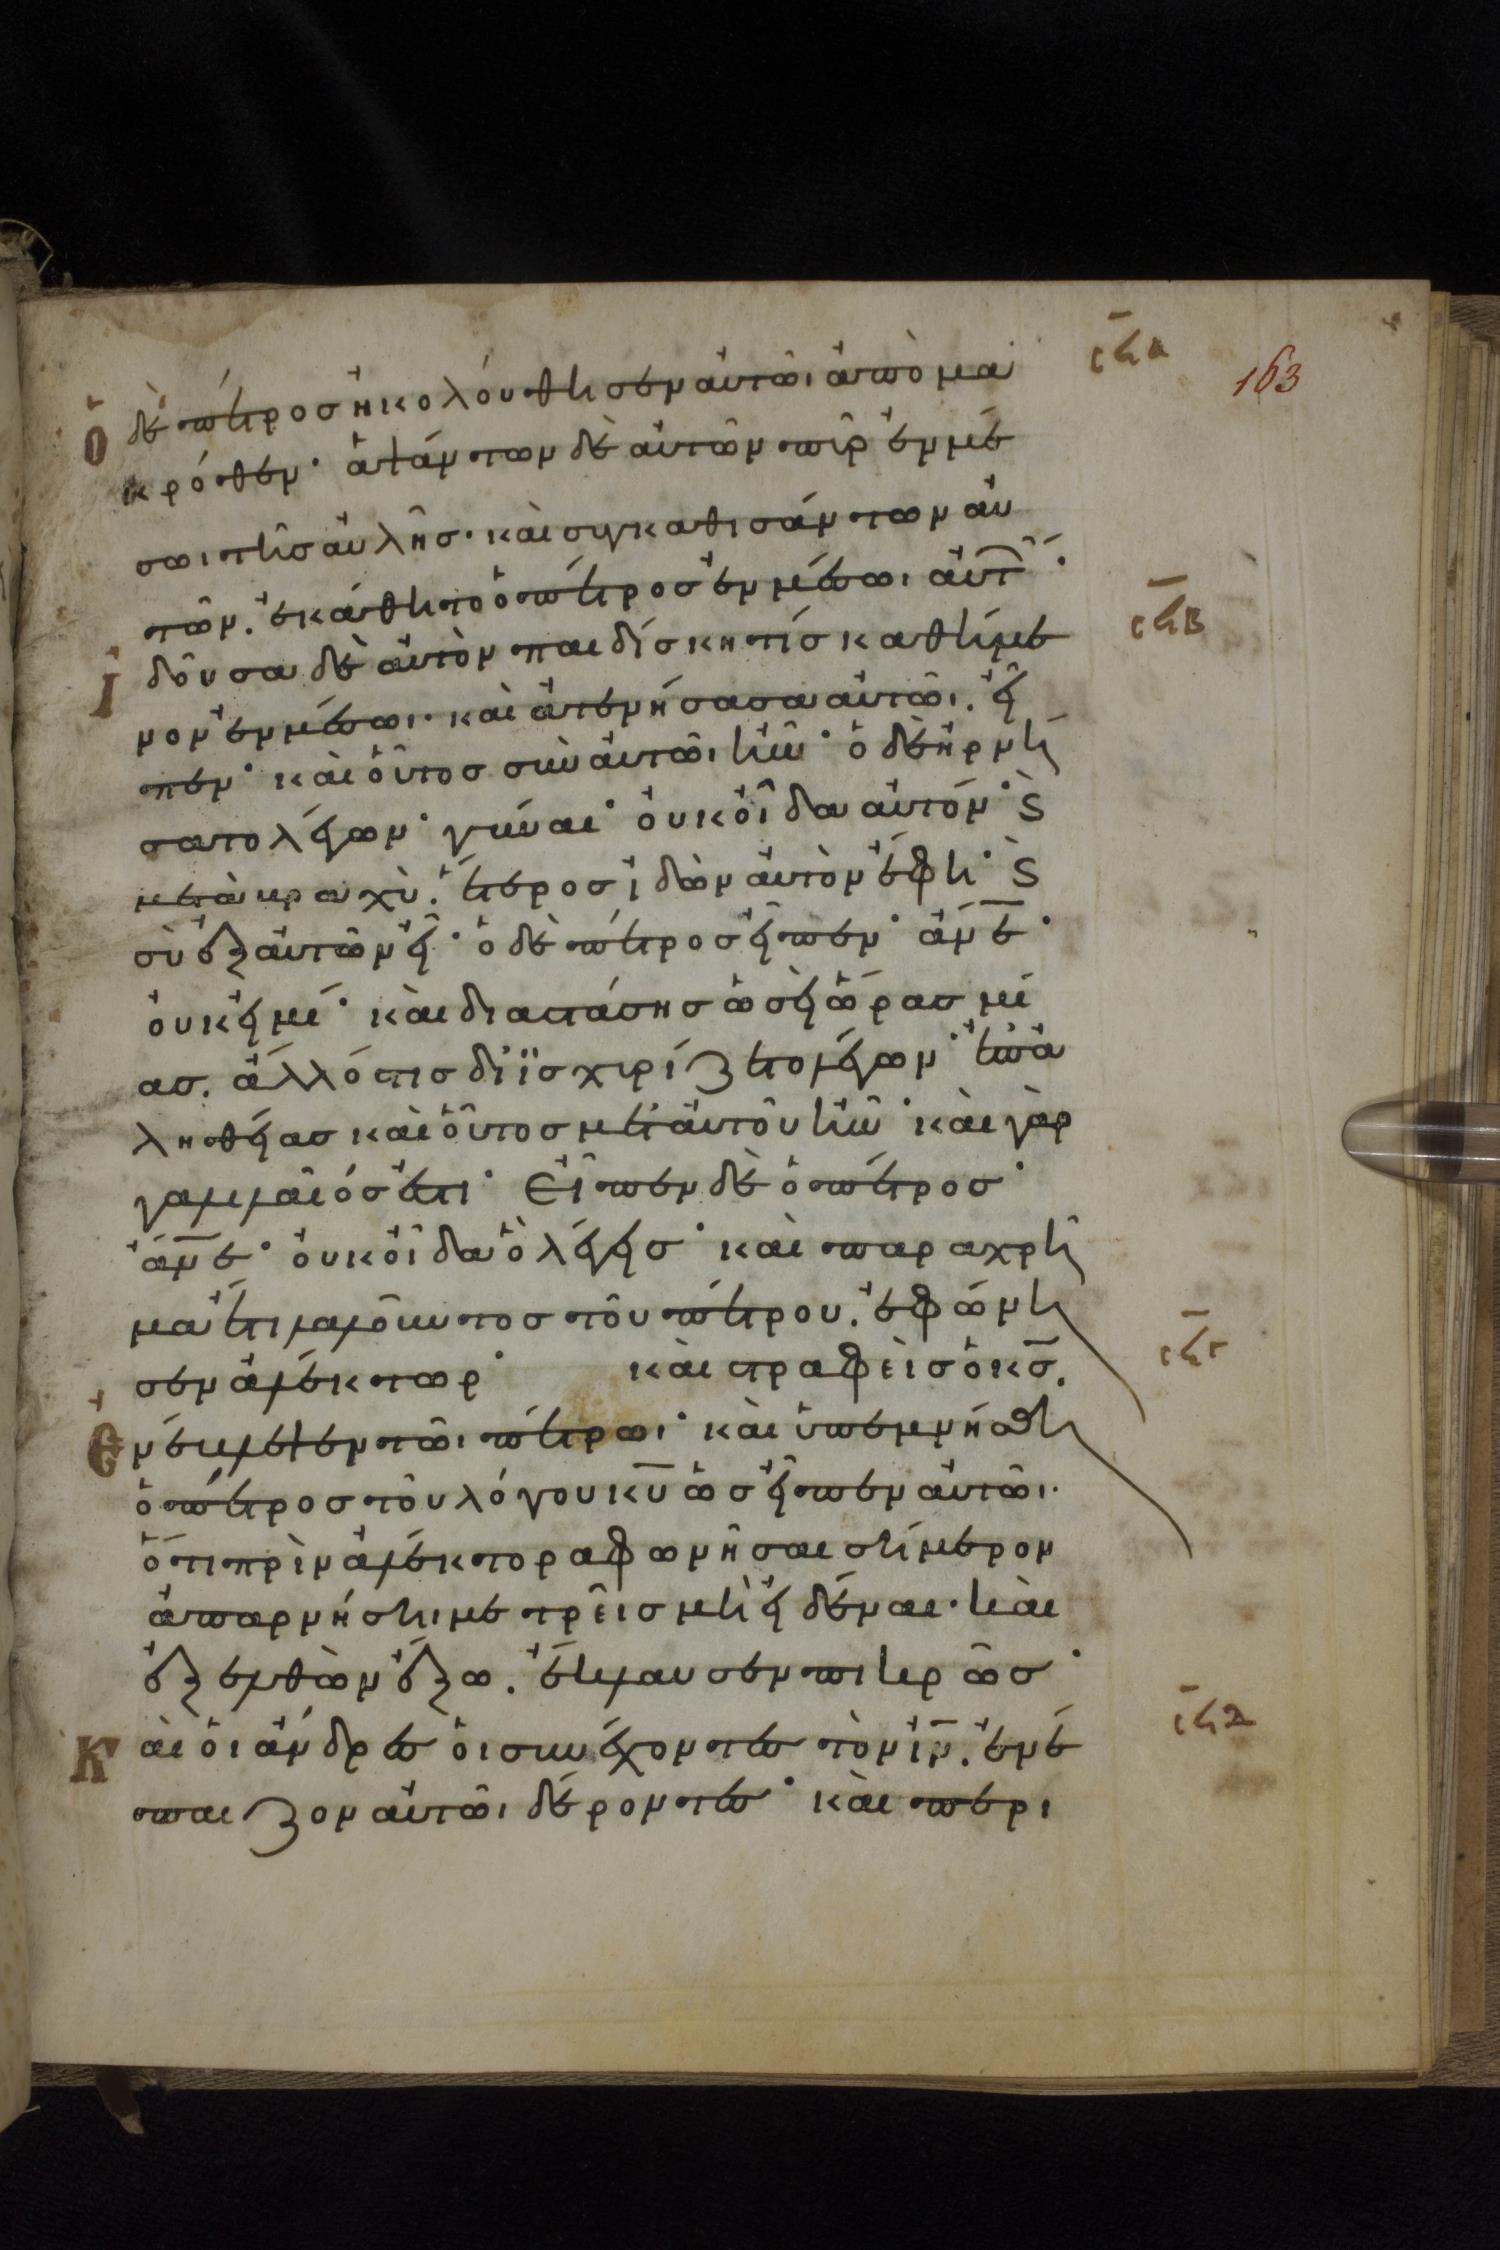 163
ὁ δὲ πέτροσ ἠκολούθησεν αὐτῶι ἀπὸ μα
κρόθεν· ἁψάντων δὲ αὐτῶν πῦρ ἐν μέ
σωι τῆσ αὐλῆσ· καὶ συγκαθισάντων αὐ
τῶν. ἐκάθητο ὁ πέτροσ ἐν μέσωι αὐτ·
ἰδοῦσα δὲ αὐτὸν παιδίσκη τίσ καθήμε
νον ἐν μέσωι· καὶ ἀτενήσασα αὐτῶι. εἶ
πεν· καὶ οὗτοσ σὺν αὐτῶι ἦν· ὁ δὲ ἠρνή
σατο λέγων· γύναι· οὐκ οἶδα αὐτόν· ϛ
μετὰ βραχὺ. ἕτεροσ ἰδὼν αὐτὸν ἔφη· ϛ
σὺ ἐξ αὐτῶν εἶ· ὁ δὲ πέτροσ εἶπεν· ἄνε·
οὐκ εἰμί· καὶ διαστάσησ ὡσεὶ ὥρασ μι
ασ. ἄλλό τισ διϊσχυρίζετο λέγων· ἐπ ἀ
ληθείασ καὶ οὗτοσ μετ αὐτοῦ ἦν· καὶ γὰρ
γαλιλαῖόσ ἐστι· Εἶπεν δὲ ὁ πέτροσ·
ἄνε· οὐκ οἶδα ὃ λέγεισ· καὶ παραχρῆ
μα ἔτι λαλοῦντοσ τοῦ πέτρου. ἐφώνη
σεν ἀλέκτωρ· καὶ στραφεὶσ ὁ κσ.
ἐνέβλεψεν τῶι πέτρωι· καὶ ὑπεμνήσθη
ὁ πέτροσ τοῦ λόγου κυ ὡσ εἶπεν αὐτῶι·
ὅτι πρὶν ἀλέκτορα φωνῆσαι σήμερον
ἀπαρνήσηι με τρεῖσ μὴ εἰδέναι· καὶ
ἐξελθὼν ἔξω. ἔκλαυσεν πικρῶσ·
Καὶ οἱ ἄνδρεσ οἱ συνέχοντεσ τὸν ιν. ἐνέ
παιζον αὐτῶι δέροντεσ· καὶ περι